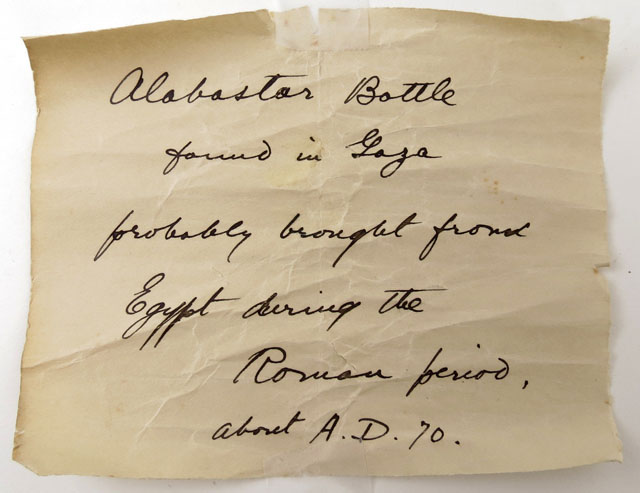 Alabastar Bottle
found in Gaza
probably brought from
Egypt during the
Roman period,
about A.D. 70.